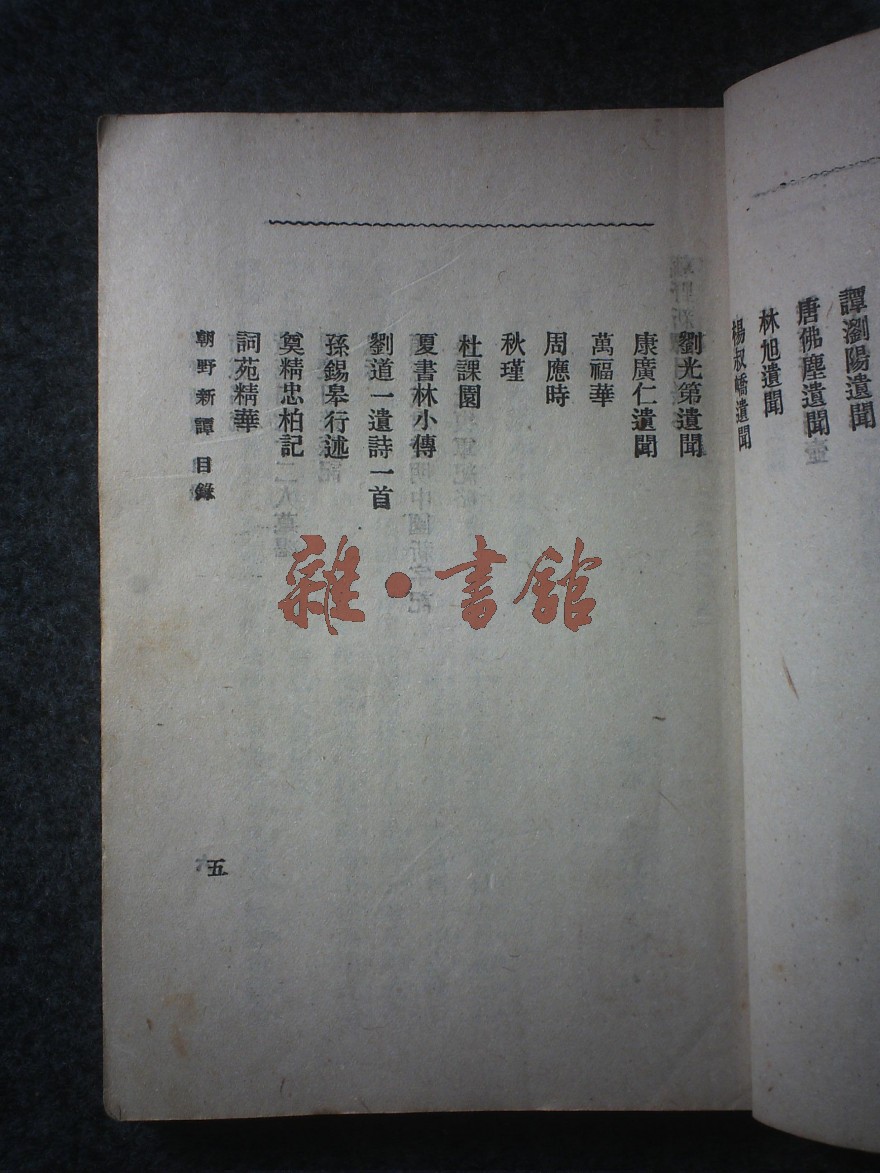 譚瀏陽遺聞
唐佛塵遺聞
林旭遺聞
楊叔嶠遺聞
劉光第遺聞
康廣仁遺聞
萬福華
周應時
秋瑾
杜課園
夏書林小傳
劉道一遺詩一首
孫錫皋行述
奠精忠柏記
詞苑精華
朝野新譚 目錄
五
雜·書館